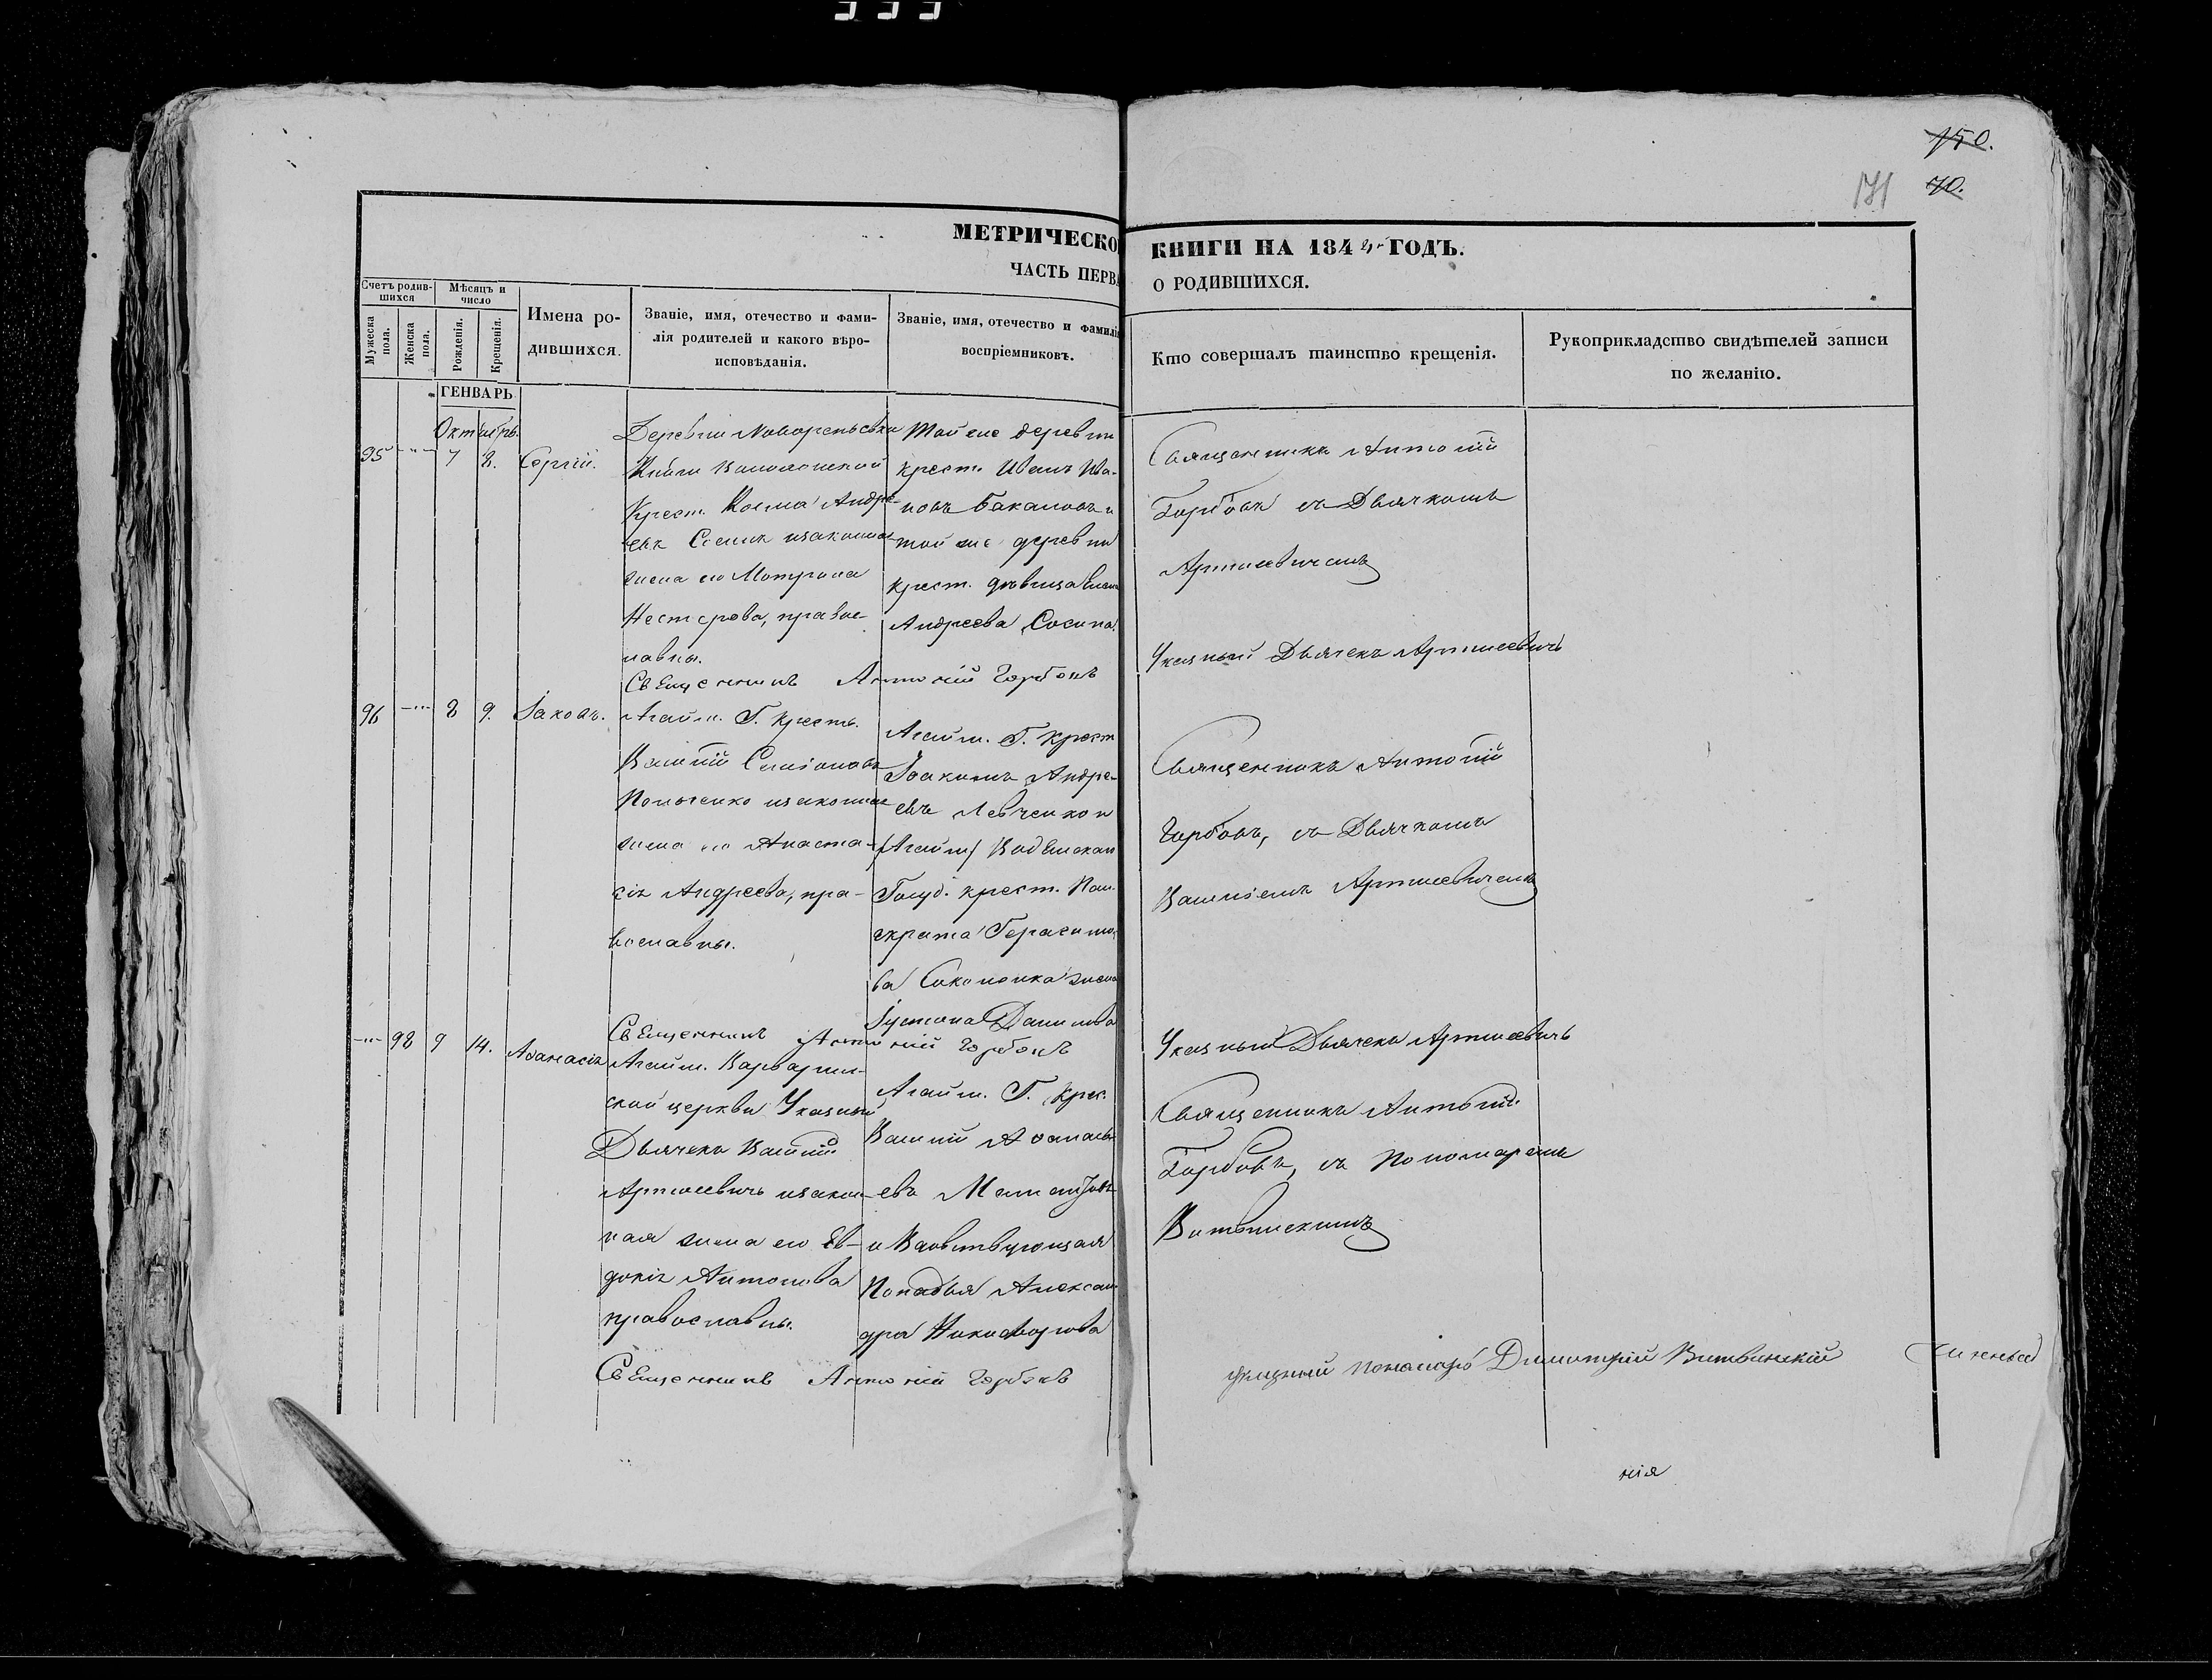 333
150.
171 70.
МЕТРИЧЕСКО КНИГИ НА 1842 ГОДЪ.
ЧАСТЬ ПЕРВА О РОДИВШИХСЯ.
Счетъ родив-
шихся
Мужеска пола.
Женска пола.
Мѣсяцъ и
число
Рожденія.
Крещенія.
Имена ро-
дившихся.
Званіе, имя, отечество и фами-
лія родителей и какого вѣро-
исповѣданія.
Званіе, имя, отечество и фамилія
воспріемниковъ.
Кто совершалъ таинство крещенія.
Рукоприкладство свидѣтелей записи
по желанію.
ГЕНВАРЬ
Октябрь.
95 7 8. Сергій.
Деревни
Крест. Косма Андре-
евъ законная
жена его Матрона
Нестерова, правос-
лавны.
Той же деревни
крест. Иванъ Ива-
новъ Бакановъ и
той же деревни
крест. дѣвица
Андреева Сосина.
Священникъ Антоній
Горбовъ съ Дьячкомъ
Артисевичемъ
Священникъ Антоній Горбовъ
Указный Дьячекъ Артисевичъ
96 8 9. Іаковъ.
Агайм. Г. крест.
Василій Симіоновъ
законная
жена его Анаста-
сія Андреева, пра-
вославны.
Агайм. Г. крест
Іоакимъ Андре-
евъ Левченко и
Агайм
крест. Пан-
крата Герасимо-
ва Соколенка жена
Іустина Данилова
Священникъ Антоній
Горбовъ, съ Дьячкомъ
Василіемъ Артисевичемъ
Священникъ Антоній Горбовъ
Указный Дьячекъ Артисевичъ
98 9 14. Аѳанасія
Агайм. Варварин-
ской церкви Указный
Дьячекъ Василій
Артисевичъ закон-
ная жена его Ев-
докія Антонова
православны.
Агайм. Г. Крес.
Василій Аѳанась-
евъ
и Вдовствующая
Попадья Алексан-
дра Никифорова
Священникъ Антоній
Горбовъ, съ Пономаремъ
Витвинскимъ
Священникъ Антоній Горбовъ
Указный пономарь Димитрій Витвинскій
нія